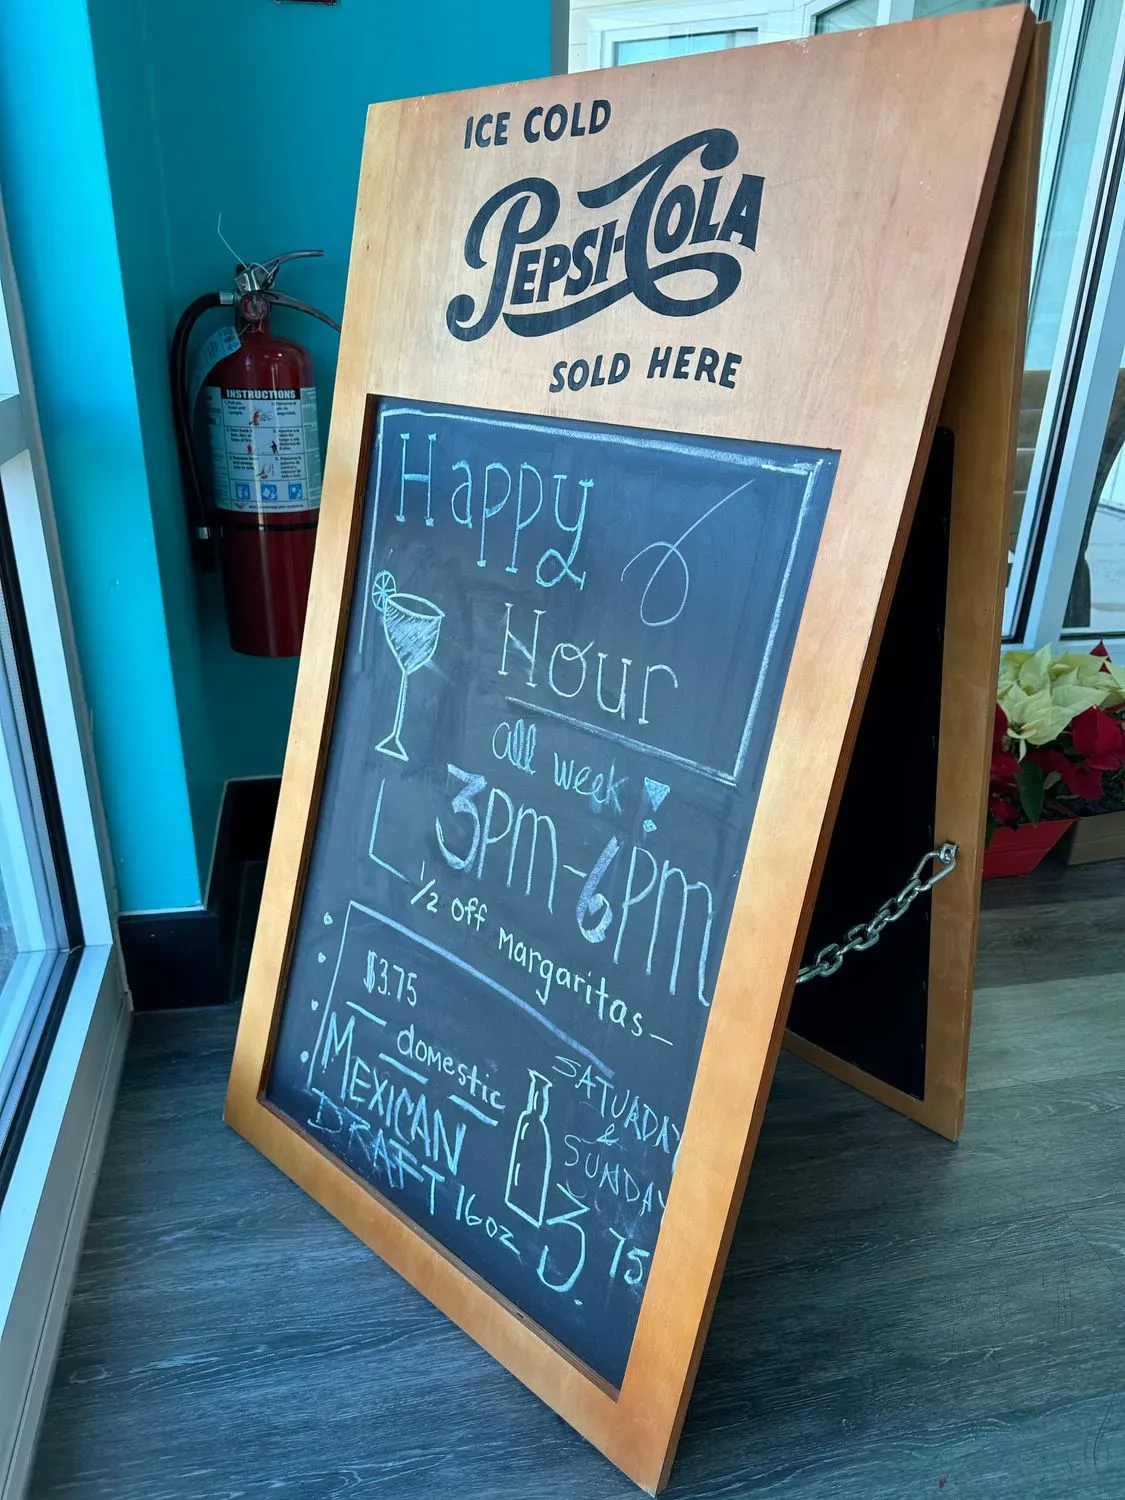 ICE COLD
PEPSI-COLA
SOLD HERE
INSTRUCTIONS
Happy
Hour
all week
3pm-6pm
1/2 off margaritas-
$3.75
domestic
MEXICAN
DRAFT 16oz
SATURDAY
&
SUNDAY
3.75